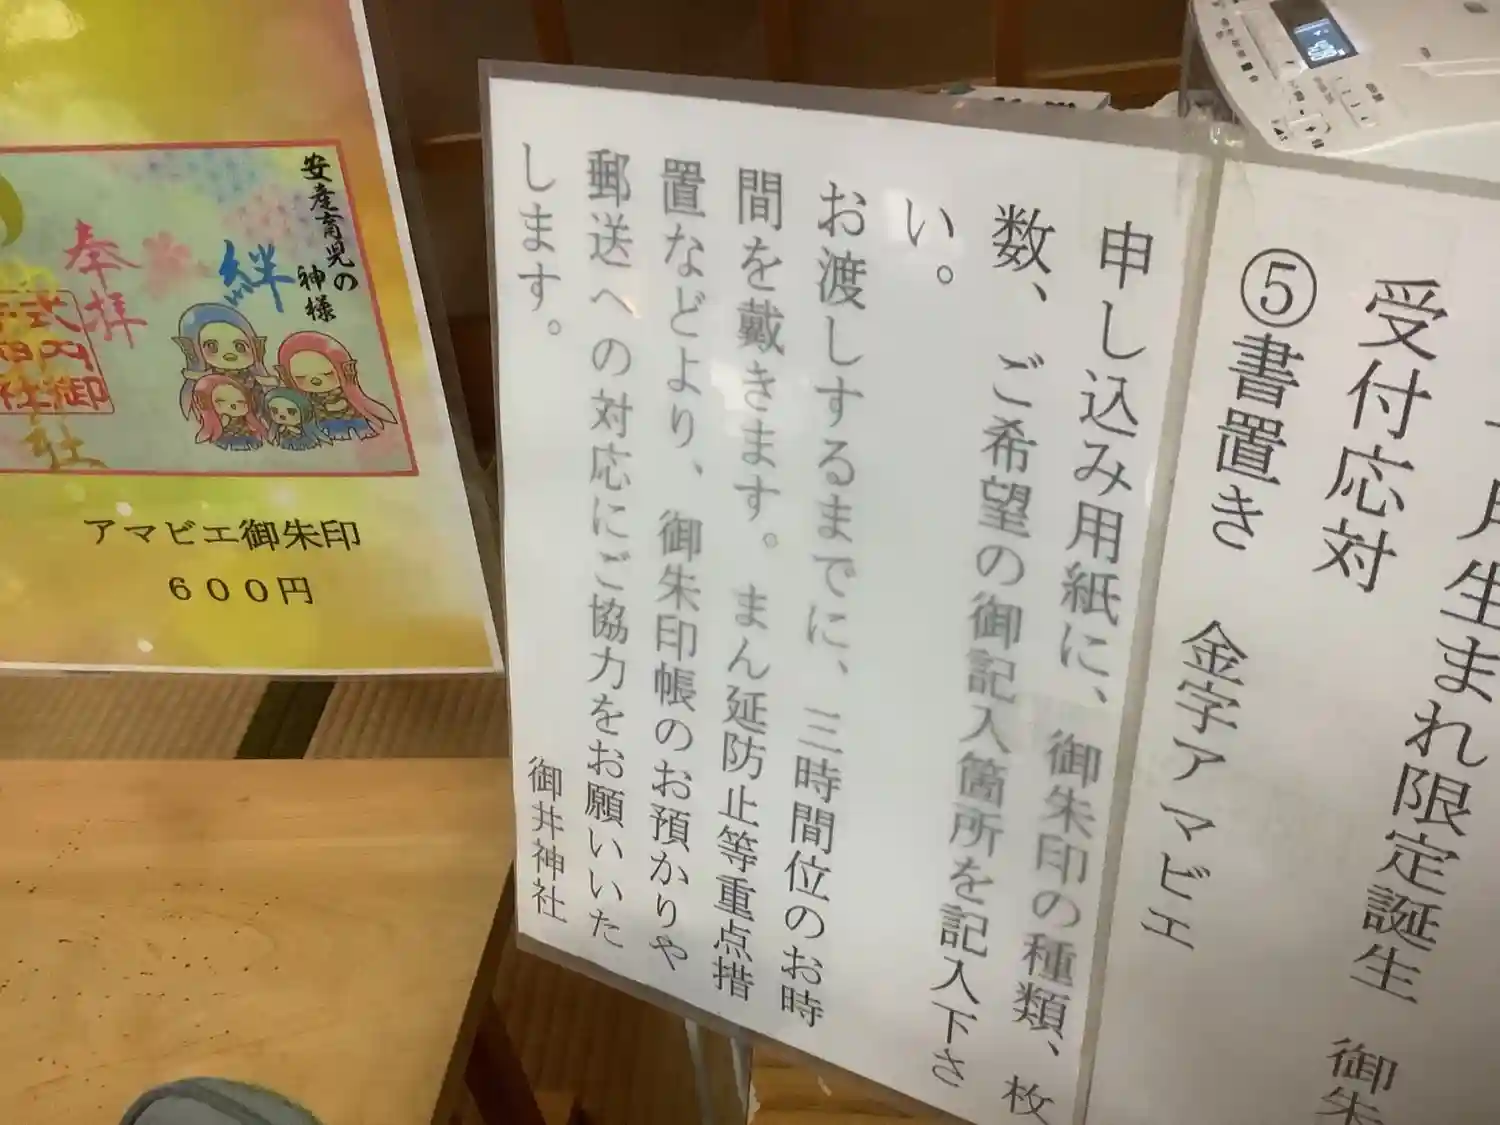 受付応対
⑤書置き　金字アマビエ
まれ限定誕生　御朱
申し込み用紙に、御朱印の種類、枚
数、ご希望の御記入箇所を記入下さ
い。
お渡しするまでに、三時間位のお時
間を戴きます。まん延防止等重点措
置などより、御朱印帳のお預かりや
郵送への対応にご協力をお願いいた
します。
御井神社
安産育児の
神様
絆
奉拝
アマビエ御朱印
６００円